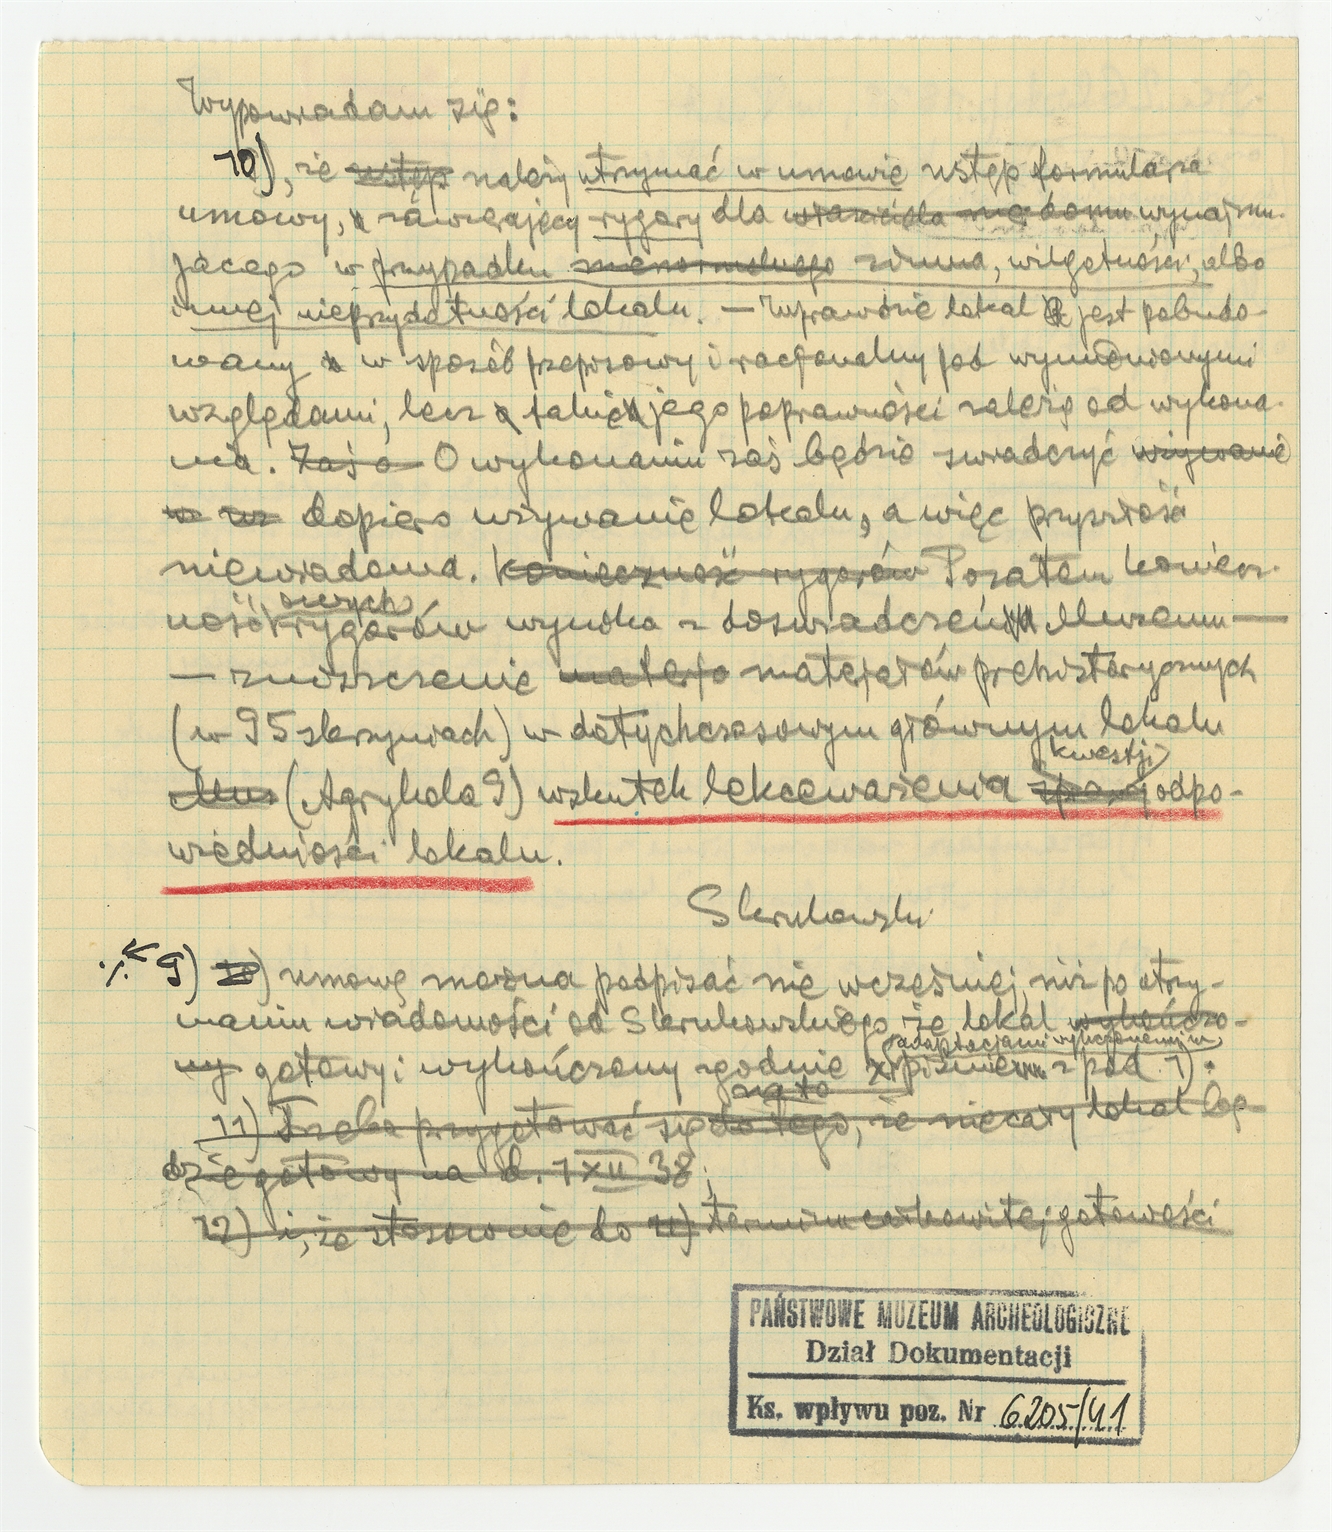 Wypowiadam się:
10), że wstęp należy utrzymać w umowie wstęp formularza
umowy, zawierający rygory dla właściciela domu wynajmu-
jącego w przypadku nienormalnego zimna, wilgotności, albo
innej nieprzydatności lokalu. — Wprawdzie lokal jest pobudo-
wany w sposób przepisowy i racjonalny pod wymienionymi
względami, lecz jego poprawności zależą od wykona-
nia. Zaś o O wykonaniu zaś będzie świadczyć używanie
dopiero używanie lokalu, a więc przyszłość
niewiadoma. Konieczność rygorów Pozatem koniecz-
ność owych rygorów wynika z doświadczeń Muzeum —
— zniszczenie materjo materjałów prehistorycznych
(w 95 skrzyniach) w dotychczasowym głównym lokalu
Muz (Agrykola 9) wskutek lekceważenia kwestji odpo-
wiedniości lokalu.
Skrukowski
·/. 9) umowę można podpisać nie wcześniej, niż po otrzy-
maniu wiadomości od Skrukowskiego że lokal wykończo-
ny gotowy i wykończony zgodnie z adaptacjami wyliczonemi w
piśmie z pod 1).
11) Trzeba przygotować się na to do tego, że niecały lokal bę-
dzie gotowy na d. 1 XII 38;
12) i, że stosownie do 11) termin całkowitej gotowości
PAŃSTWOWE MUZEUM ARCHEOLOGICZNE
Dział Dokumentacji
Ks. wpływu poz. Nr 6205/41